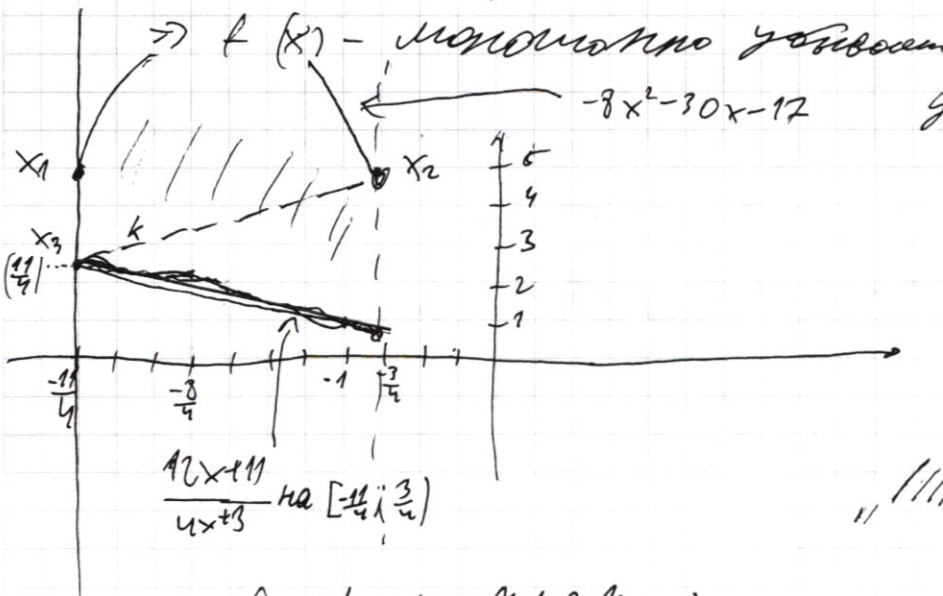 => f (x) - монотонно убывает
-8x²-30x-17
у
x₁
x₂
5
4
k
3
x₃
(11/4)
2
1
-11/4
-8/4
-1
-3/4
12x+11 / 4x+3 на [-11/4; 3/4)